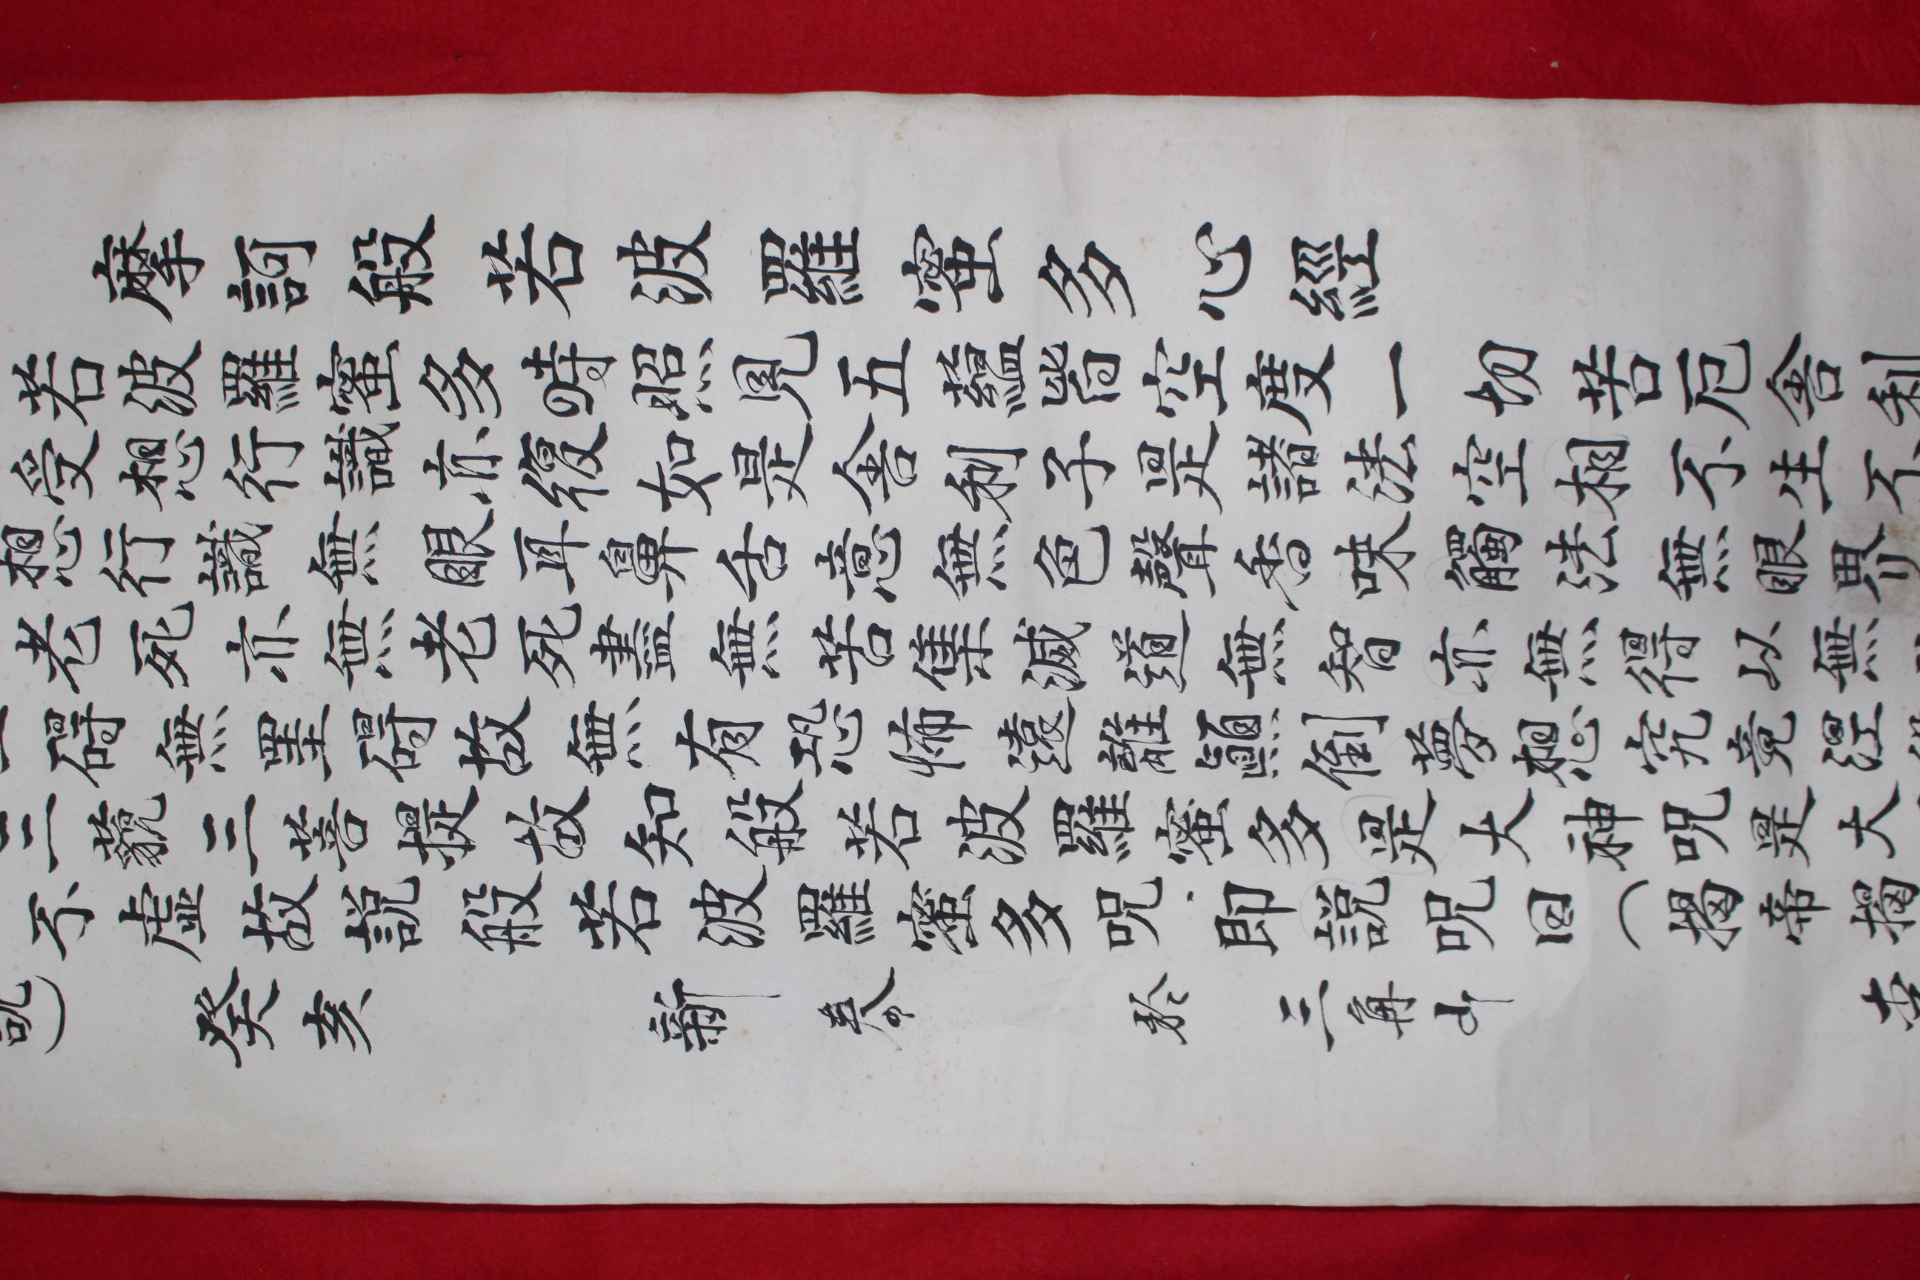 摩訶般若波羅蜜多心經
若波羅蜜多時照見五蘊皆空度一切苦厄舍利
受想行識亦復如是舍利子是諸法空相不生不
想行識無眼耳鼻舌意無色聲香味觸法無眼界
老死亦無老死盡無苦集滅道無智亦無得以無
礙無罣碍故無有恐怖遠離顚倒夢想究竟涅
三藐三菩提故知般若波羅蜜多是大神呪是大
不虛故說般若波羅蜜多呪即說呪曰(揭帝揭
說)癸亥 新春 於 三角山